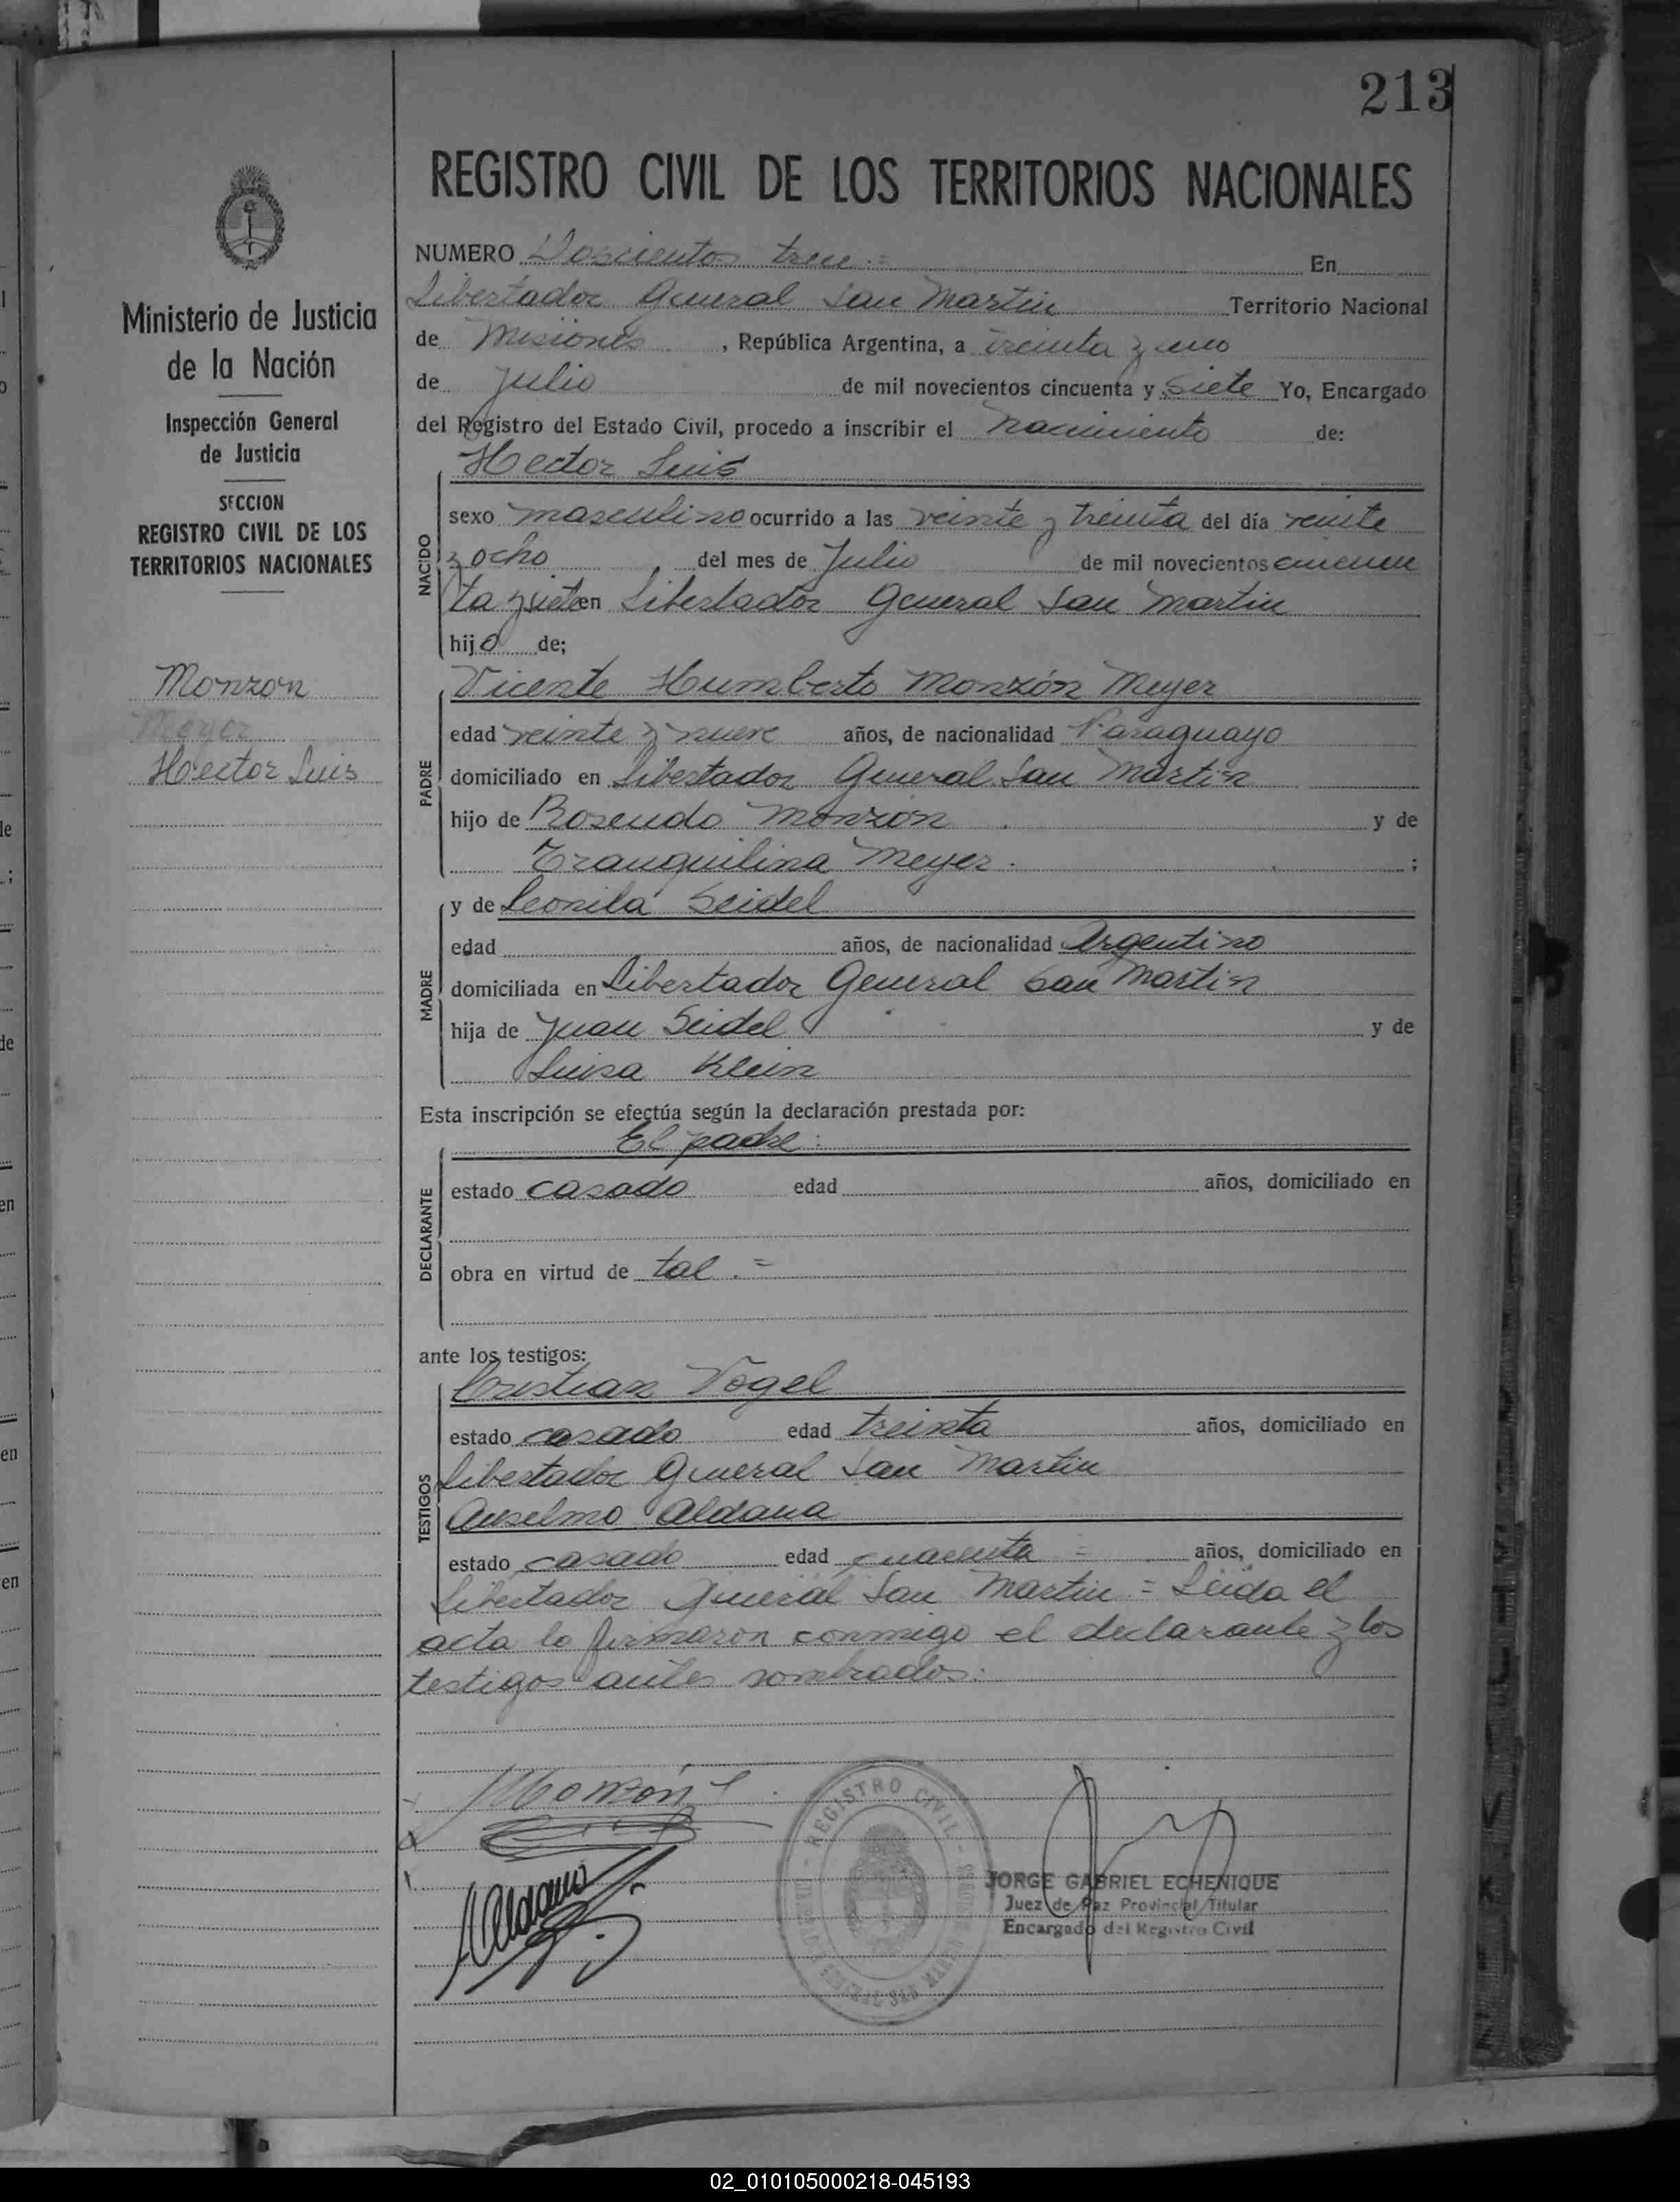 213
REGISTRO CIVIL DE LOS TERRITORIOS NACIONALES
Ministerio de Justicia
de la Nación
Inspección General
de Justicia
SECCION
REGISTRO CIVIL DE LOS
TERRITORIOS NACIONALES
Monzon
Meyer
Hector Luis
NUMERO Doscientos trece.= En
Libertador General San Martin Territorio Nacional
de Misiones, República Argentina, a treinta y uno
de Julio de mil novecientos cincuenta y siete Yo, Encargado
del Registro del Estado Civil, procedo a inscribir el Nacimiento de:
NACIDO
Hector Luis
sexo masculino ocurrido a las veinte y treinta del día veinte
y ocho del mes de Julio de mil novecientos cincuen
ta y siete en Libertador General San Martin
hijo de;
PADRE
Vicente Humberto Monzón Meyer
edad veinte y nueve años, de nacionalidad Paraguayo
domiciliado en Libertador General San Martin
hijo de Rosendo Monzón y de
Tranquilina Meyer. ;
MADRE
y de Leonila Seidel
edad años, de nacionalidad Argentino
domiciliada en Libertador General San Martin
hija de Juan Seidel y de
Luisa Klein
Esta inscripción se efectúa según la declaración prestada por:
DECLARANTE
El padre:
estado casado edad años, domiciliado en
obra en virtud de tal.=
ante los testigos:
TESTIGOS
Cristian Vogel
estado casado edad treinta años, domiciliado en
Libertador General San Martin
Anselmo Aldana
estado casado edad cuarenta = años, domiciliado en
Libertador General San Martin = Leida el
acta lo firmaron conmigo el declarante y los
testigos antes nombrados:
Monzón
Aldana
REGISTRO CIVIL
JORGE GABRIEL ECHENIQUE
Juez de Paz Provincial Titular
Encargado del Registro Civil
02_010105000218-045193